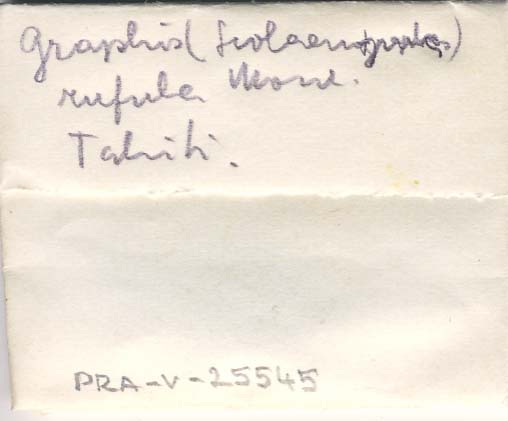 Graphis (Scolaenospora)
rufula Mont.
Tahiti.
PRA-V-25545